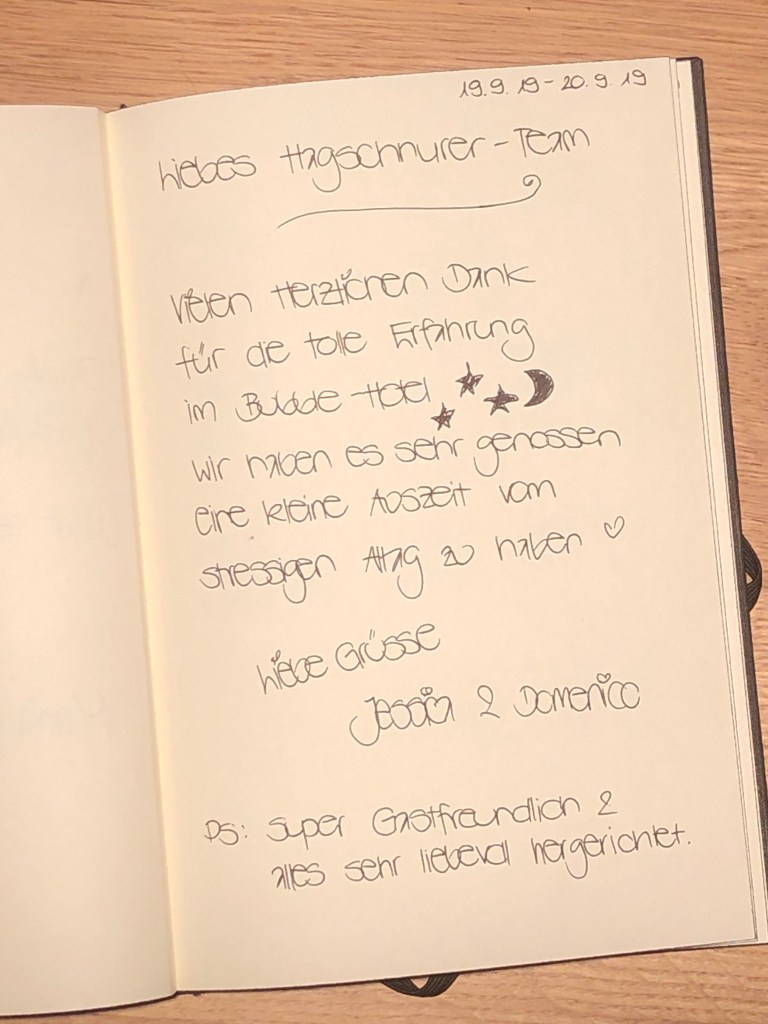 19.9.19 - 20.9.19
Liebes Hagschnurer-Team
Vielen Herzlichen Dank
für die tolle Erfahrung
im Bubble-Hotel
wir haben es sehr genossen
eine kleine Auszeit vom
stressigen Alltag zu haben ♡
Liebe Grüsse
Jessica & Domenico
PS: Super Gastfreundlich &
alles sehr liebevoll hergerichtet.